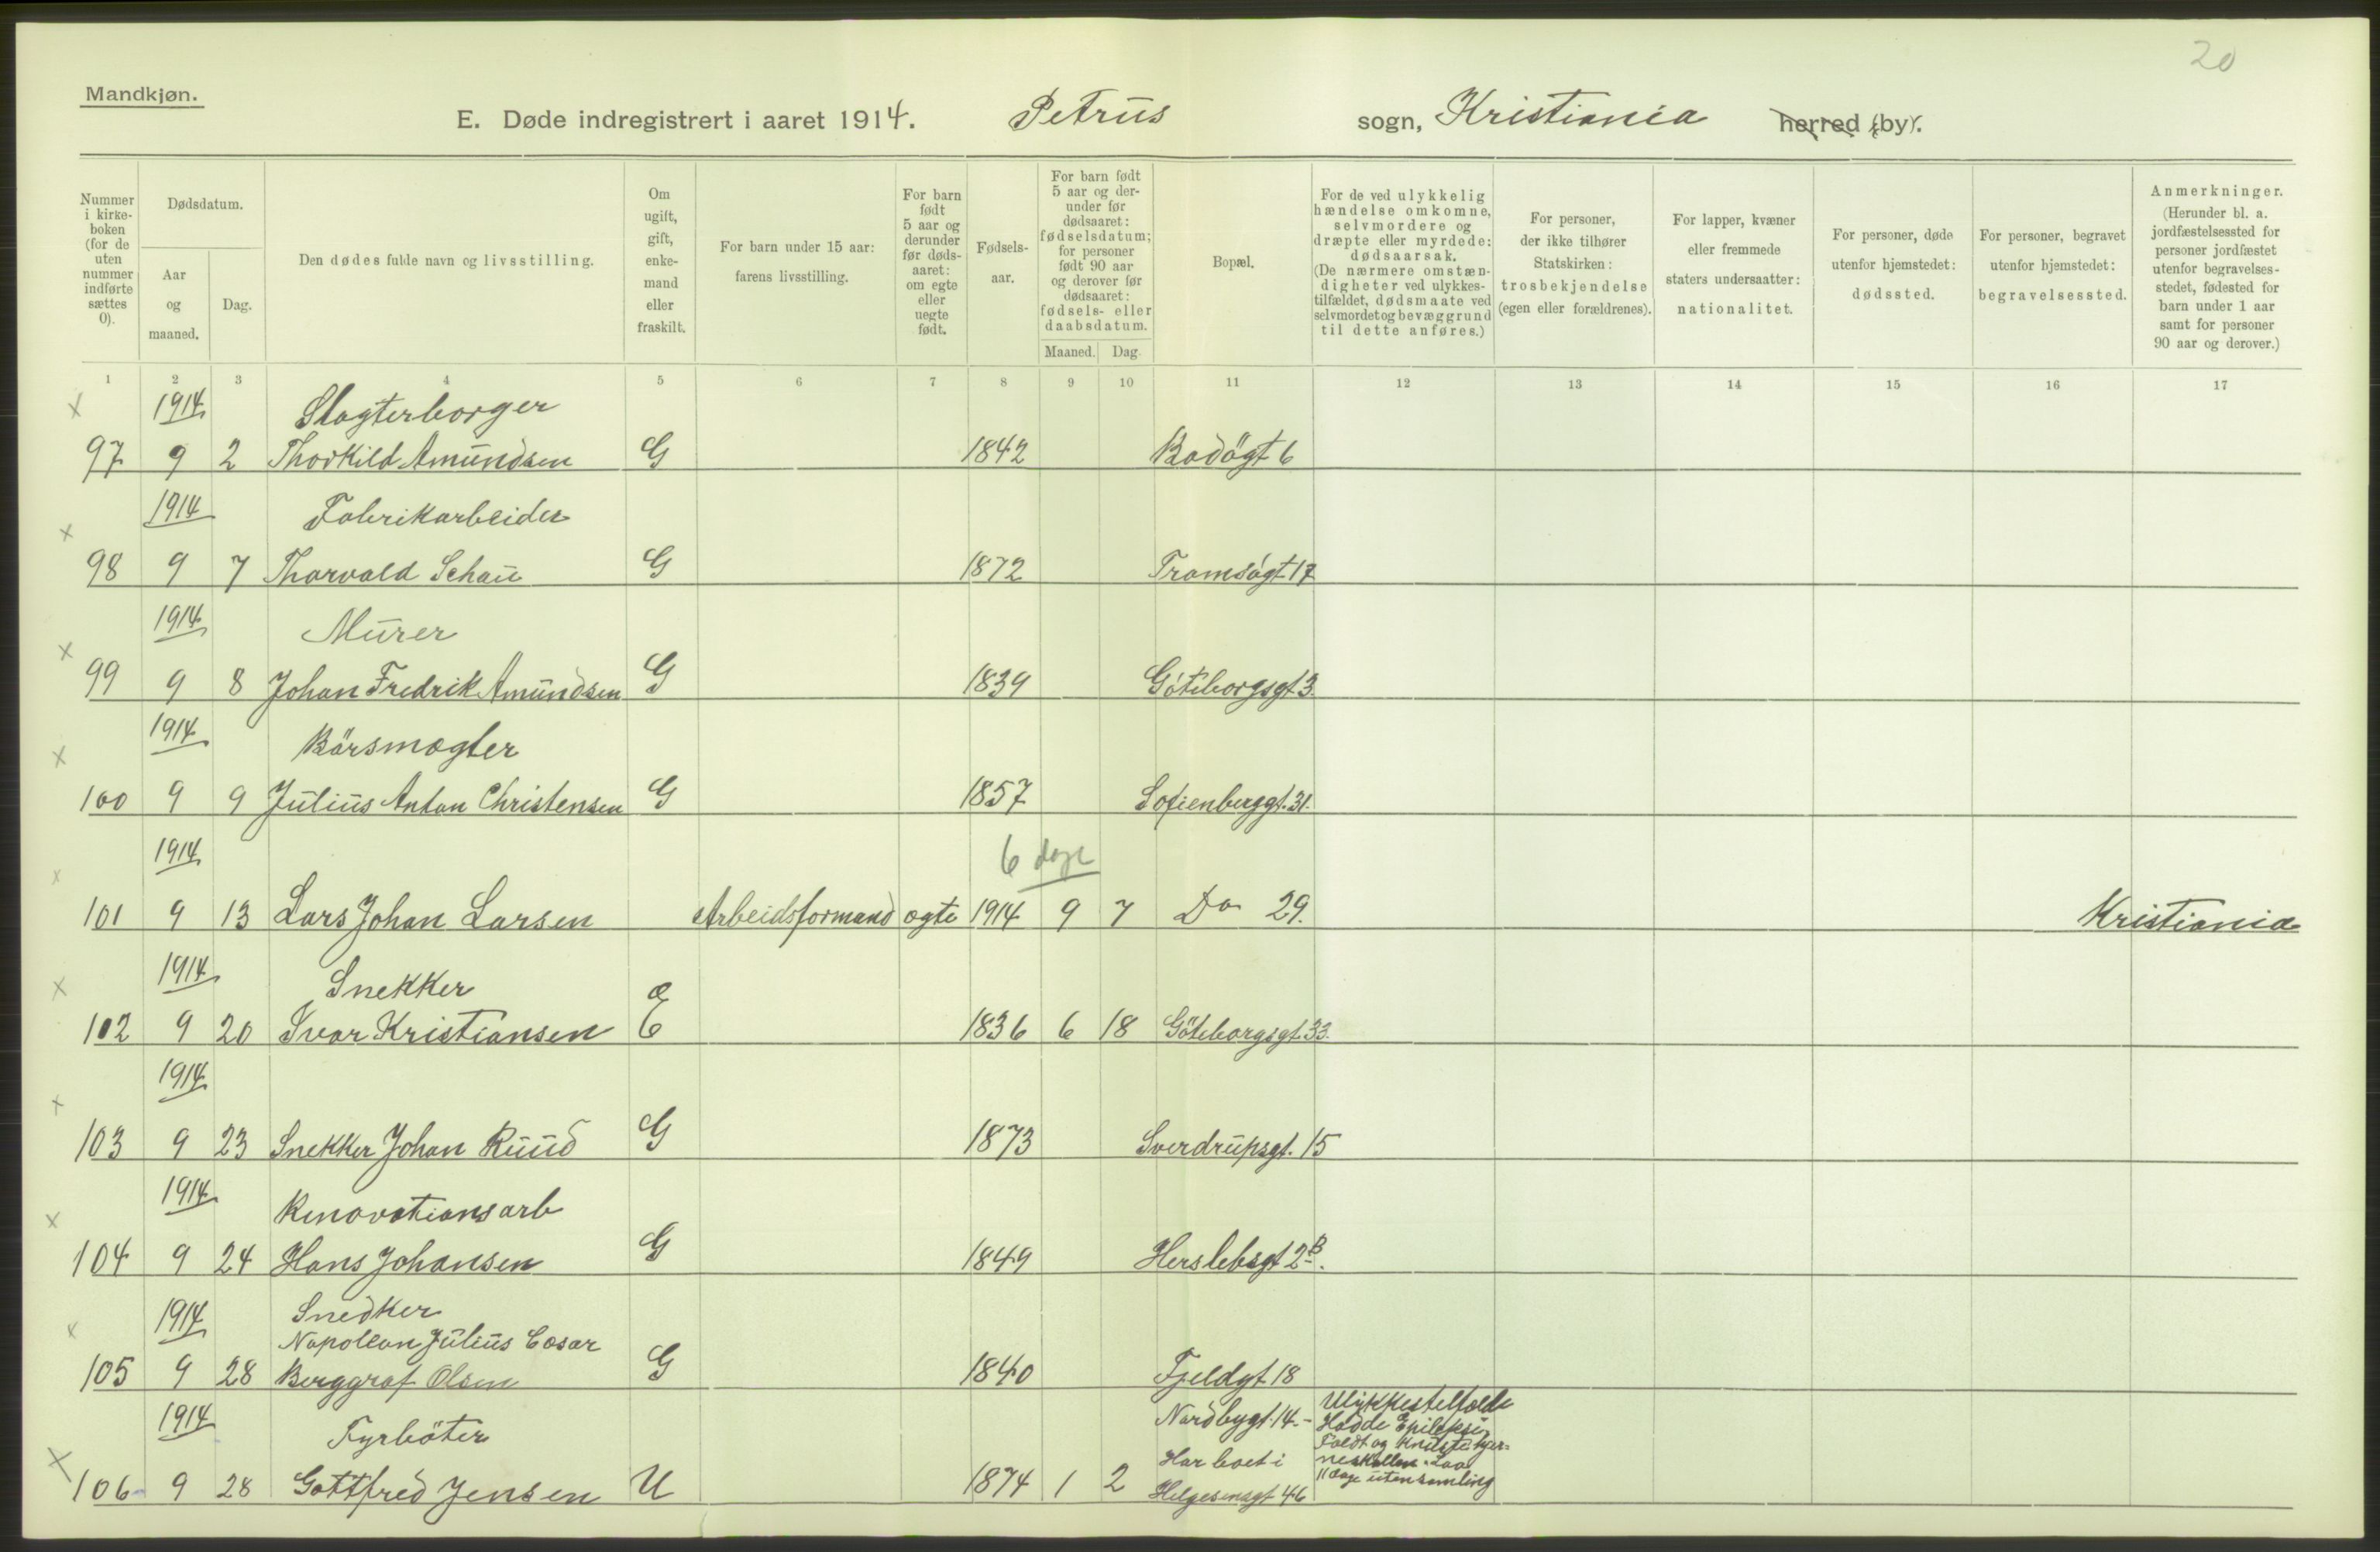 20
Mandkjøn.
E. Døde indregistrert i aaret 1914. Petrus sogn, Kristiania herred (by).
Nummer i kirke- boken (for de uten nummer indførte sættes 0).
Dødsdatum.
Aar og maaned.
Dag.
Den dødes fulde navn og livsstilling.
Om ugift, gift, enke- mand eller fraskilt.
For barn under 15 aar: farens livsstilling.
For barn født 5 aar og derunder før døds- aaret: om egte eller uegte født.
Fødsels- aar.
For barn født 5 aar og der- under før dødsaaret: fødselsdatum; for personer født 90 aar og derover før dødsaaret: fødsels- eller daabsdatum.
Maaned. Dag.
Bopæl.
For de ved ulykkelig hændelse omkomne, selvmordere og dræpte eller myrdede: dødsaarsak. (De nærmere omstæn- digheter ved ulykkes- tilfældet, dødsmaate ved selvmordet og bevæggrund til dette anføres.)
For personer, der ikke tilhører Statskirken: trosbekjendelse (egen eller forældrenes).
For lapper, kvæner eller fremmede staters undersaatter: nationalitet.
For personer, døde utenfor hjemstedet: dødssted.
For personer, begravet utenfor hjemstedet: begravelsessted.
Anmerkninger. (Herunder bl. a. jordfæstelsessted for personer jordfæstet utenfor begravelses- stedet, fødested for barn under 1 aar samt for personer 90 aar og derover.)
1 2 3 4 5 6 7 8 9 10 11 12 13 14 15 16 17
x 1914 Slagterborger
97 9 2 Thorkild Amundsen G 1842 Bodögt 6
1914 Fabrikarbeider
x
98 9 7 Thorvald Schau G 1872 Tromsögt 17
1914 Murer
x
99 9 8 Johan Fredrik Amundsen G 1839 Göteborgsgt 3.
1914 Börsmægler
x
100 9 9 Julius Anton Christensen G 1857 Sofienberggt. 31.
1914 6 dage
x
101 9 13 Lars Johan Larsen Arbeidsformand ægte 1914 9 7 Do 29. Kristiania
1914 Snekker
x
102 9 20 Ivar Kristiansen E 1836 6 18 Göteborgsgt. 33.
1914
x
103 9 23 Snekker Johan Ruud G 1873 Sverdrupsgt. 15
1914 Renovationsarb
x
104 9 24 Hans Johansen G 1849 Herslebsgt 2B.
1914 Snedker
x Napoleon Julius Cæsar
105 9 28 Berggraf Olsen G 1840 Fjeldgt 18
1914 Fyrböter Nordbygt. 14. - Ulykkestelfælde
Hadde Epilepsi,
Faldt og knuste hjer=
x Har boet i neskallen. Laa
106 9 28 Gottfred Jensen U 1874 1 2 Helgesensgt 46 11 dage uten samling